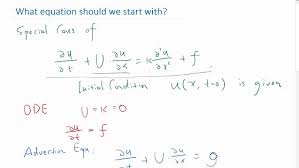 What equation should we start with?
Special cases of
∂u/∂t + U ∂u/∂x = κ ∂²u/∂x² + f.
Initial Condition u(x, t=0) is given
ODE U=κ=0
∂u/∂t = f
Advection Eqn: ∂u/∂t + U ∂u/∂x = 0